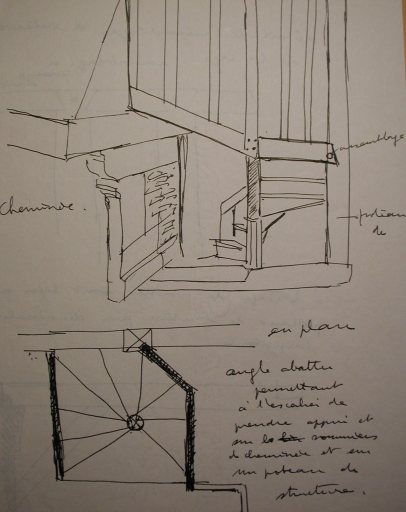 assemblage
Cheminée.
poteau
de
en plan
angle abattu
permettant
à l'escalier de
prendre appui et
sur le sommiers
de cheminée et sur
un poteau de
structure.